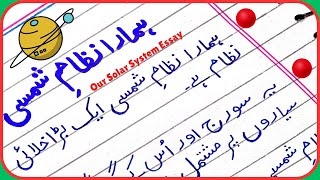 ہمارا نظامِ شمسی
Our Solar System Essay
ہمارا نظامِ شمسی ایک بڑا خلائی
نظام ہے۔
یہ سورج اور اُس کے
سیاروں پر مشتمل
شمسی